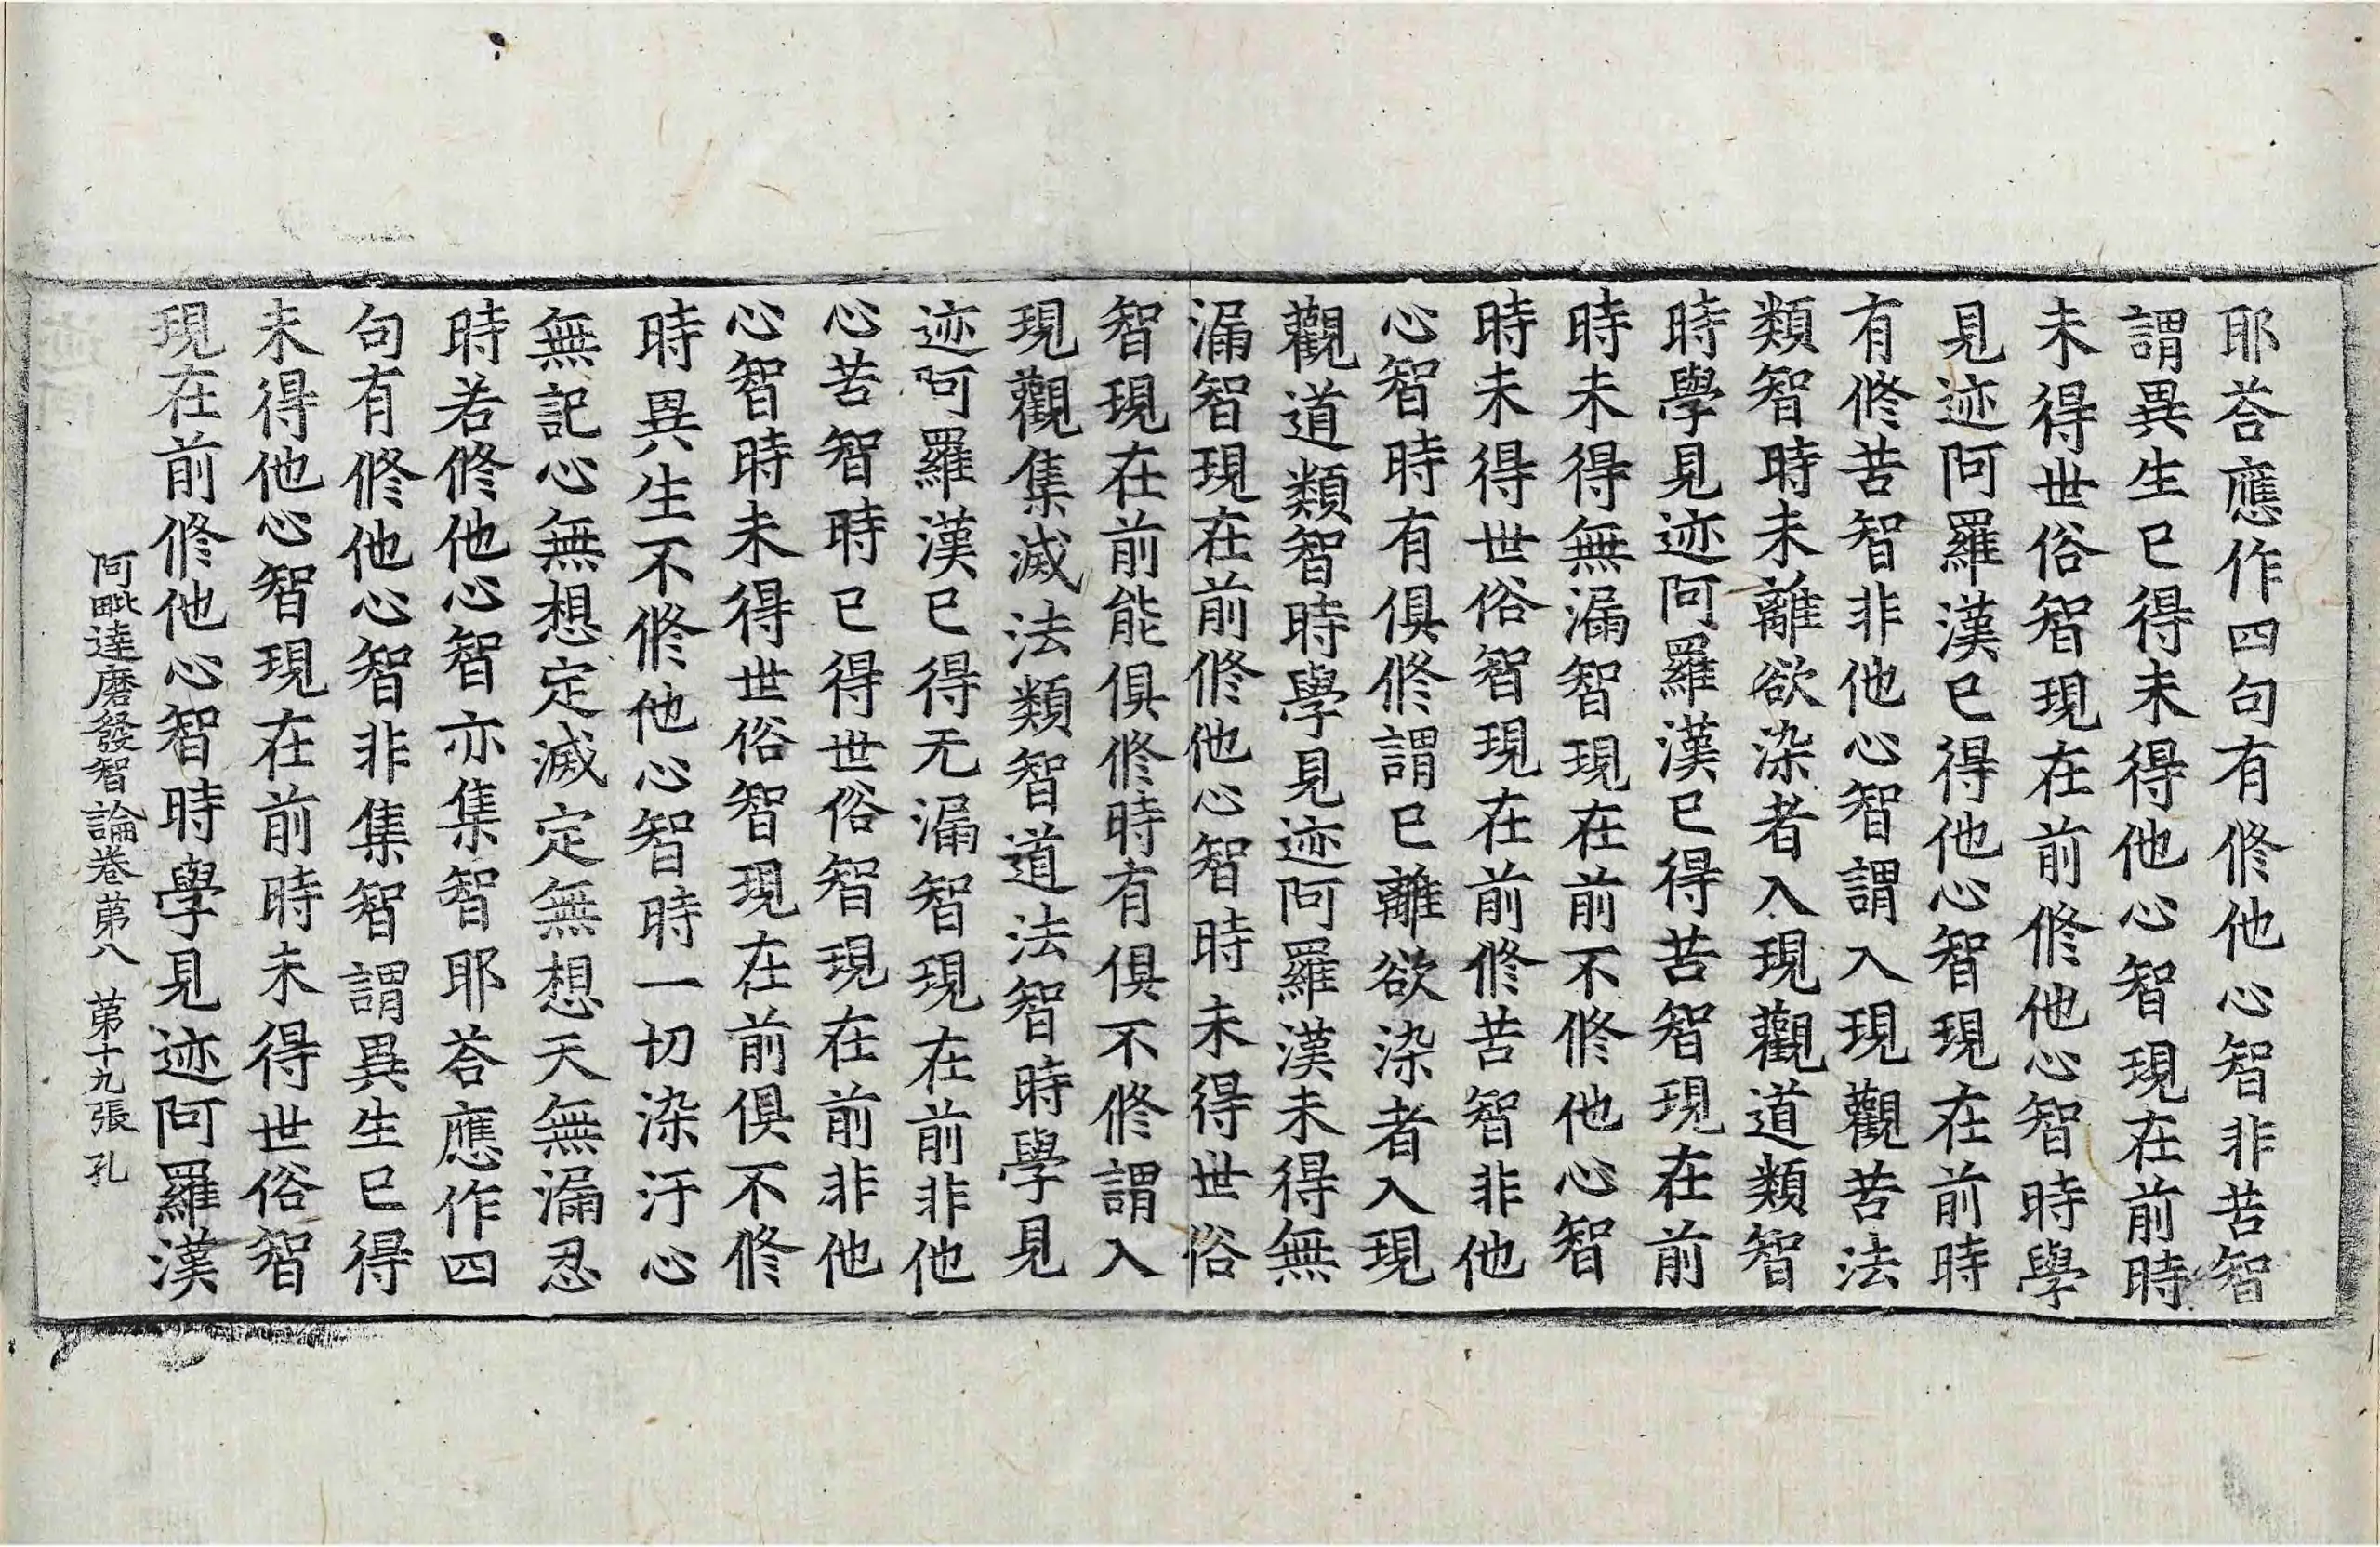 耶荅應作四句有修他心智非苦智
謂異生已得未得他心智現在前時
未得世俗智現在前修他心智時學
見迹阿羅漢已得他心智現在前時
有修苦智非他心智謂入現觀苦法
類智時未離欲染者入現觀道類智
時學見迹阿羅漢已得苦智現在前
時未得無漏智現在前不修他心智
時未得世俗智現在前修苦智非他
心智時有俱修謂已離欲染者入現
觀道類智時學見迹阿羅漢未得無
漏智現在前修他心智時未得世俗
智現在前能俱修時有俱不修謂入
現觀集滅法類智道法智時學見
迹阿羅漢已得无漏智現在前非他
心苦智時已得世俗智現在前非他
心智時未得世俗智現在前俱不修
時異生不修他心智時一切染汙心
無記心無想定滅定無想天無漏忍
時若修他心智亦集智耶荅應作四
句有修他心智非集智謂異生已得
未得他心智現在前時未得世俗智
現在前修他心智時學見迹阿羅漢
阿毗達磨發智論卷苐八 苐十九張 孔